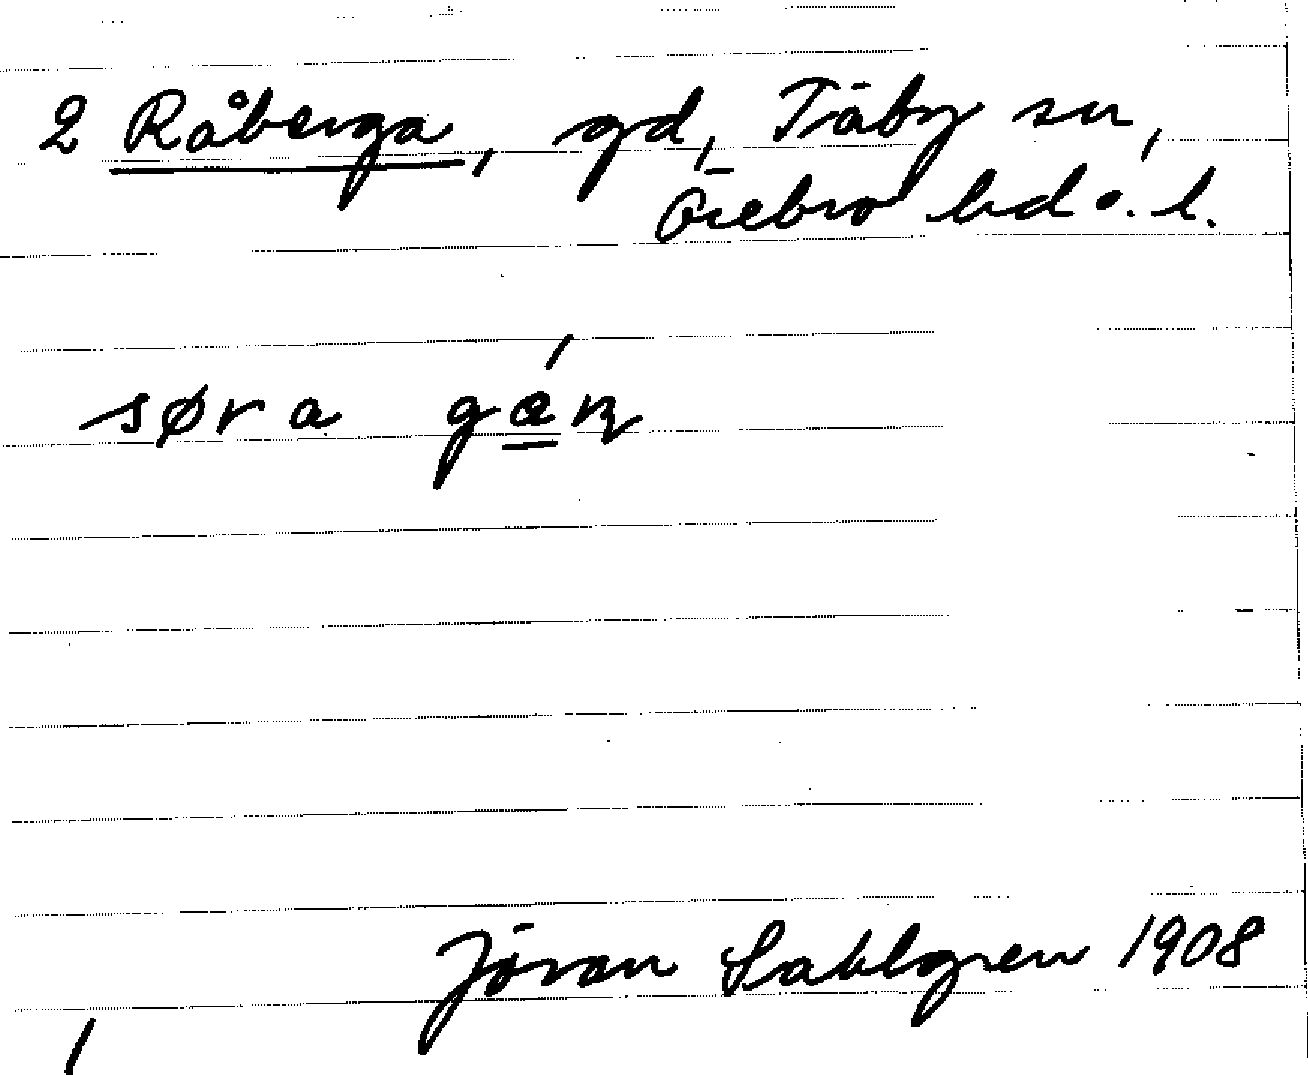 2 Råberga, gd, Täby sn,
Örebro hd o. l.
søra gá̱ɳ
Jöran Sahlgren 1908